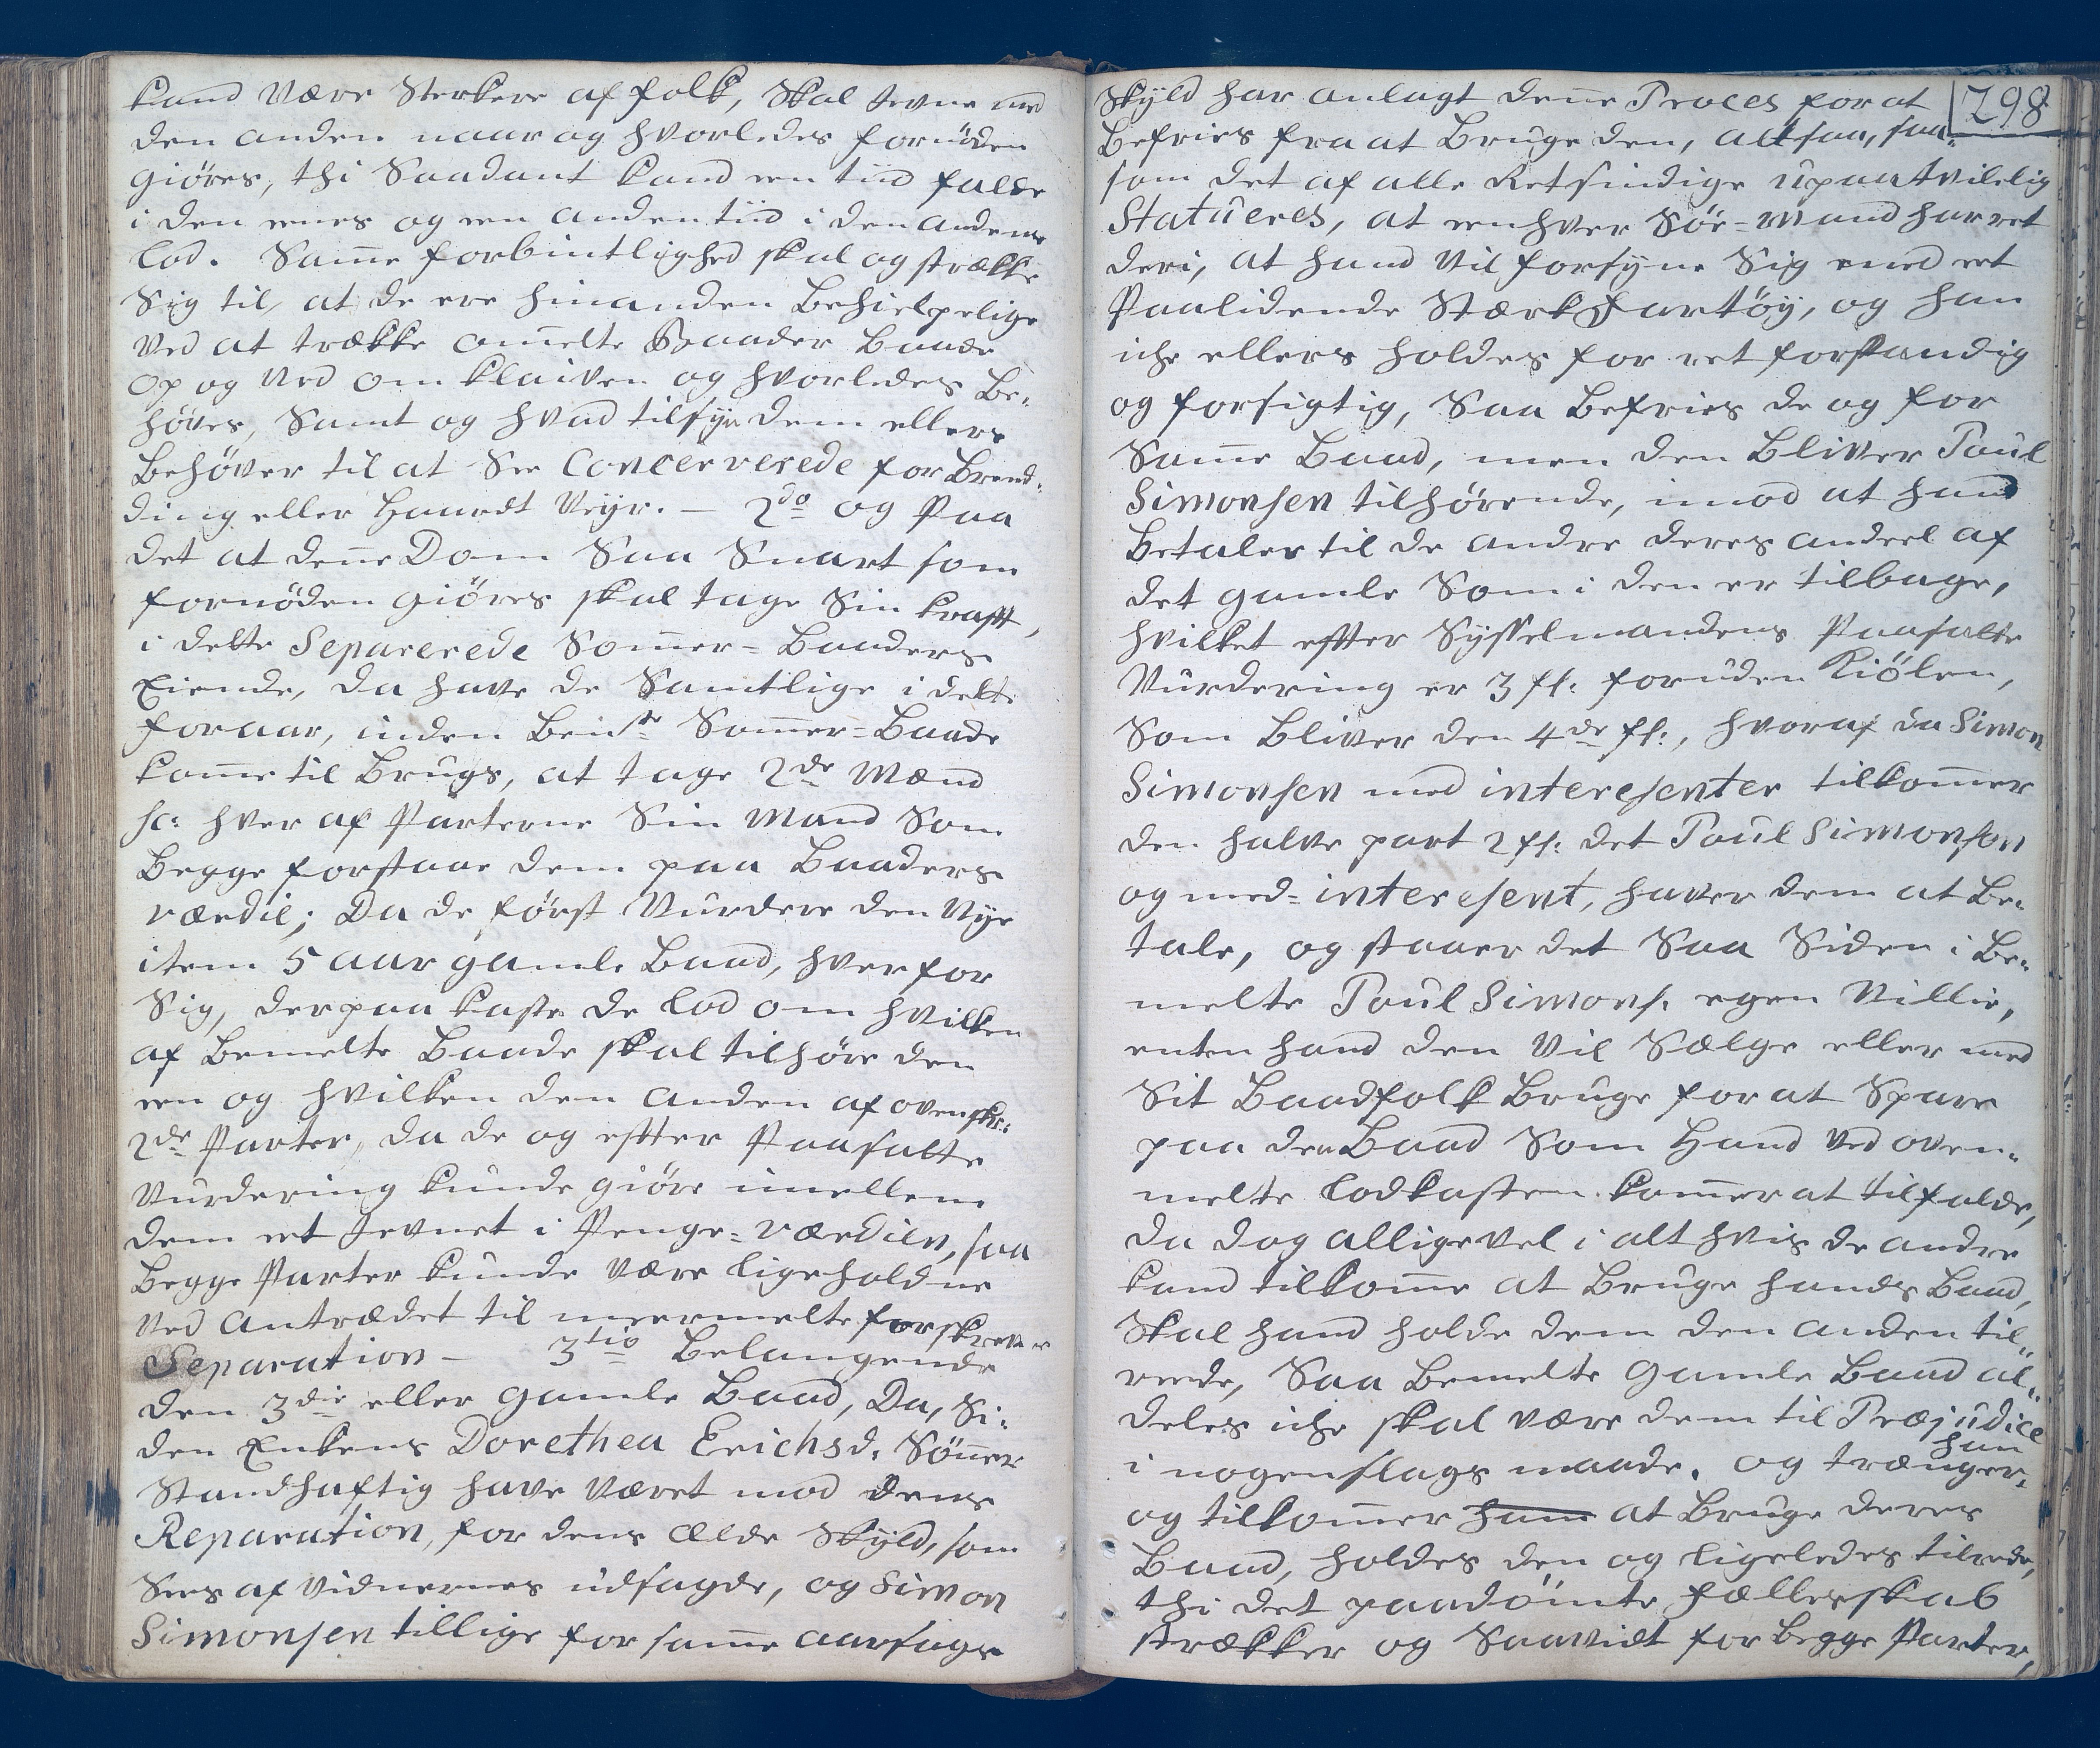 kand være Sterkere af folk, Skal Jevne med
den anden naar og hvorledes fornöden
giöres, thi Saadant kand een tiid falde
i den eenes og een anden tiid i den andens
lod. Samme forbintlighed skal og strække
Sig til, at de ere hinanden Behielpelige
ved at trække ommelte Baader Baade
op og ned om klaiven og hvorledes Be-
höves, Samt og hvad tilsyn dem ellers
Behöver til at See Concerverede for Brend-
ding eller Haardt Veyr. — 2do og Paa
det at denne Dom Saa Snart som
fornöden giöres skal tage Sin krafft,
i dette Separerede Sommer-Baaders
Eiende, da have de Samtlige i dette
foraar, inden Bemte Sommer-Baade
komme til Brugs, at tage 2de Mænd
sc: hver af Parterne Sin Mand Som
Begge forstaae dem paa Baaders
værdie; Da de først Vurdere den Nye
item 5 aar gamle Baad, hver for
Sig, derpaa kaste de lod om hvilken
af Bemelte Baade skal tilhöre den
een og hvilken den anden af ovenskr:
2de Parter, da de og effter Paasatte
Vurdering kunde giöre imellem
dem eet Jevnet i Penge-værdien, saa
Begge Parter kunde være ligeholdne
ved Antrædet til meermelte forskrevne
Separation — 3tio Belangende
den 3die eller gamle Baad, Da, Si-
den Enkens Dorethea Erichsd. Sönner
Standhaftig have været mod dens
Reparation, for dens Ælde Skyld, som
Sees af Vidnernes udsagde, og Simon
Simonsen tillige for samme aarsage
298
Skyld har anlagt denne Proces for at
Befries fra at Bruge den, altsaa, saa-
som det af alle Retsindige upaatvilelig
Statueres, at eenhver Söe-Mand har ret
deri, at hand vil forsyne Sig med eet
Paalidende Stærk Fartöy, og han
iche ellers holdes for ret forstandig
og forsigtig, Saa Befries de og for
Samme Baad, men den Bliver Poul
Simonsen tilhörende, imod at hand
Betaler til de andre deres andeel af
det gamle Som i den er tilbage,
hvilket effter Sysselmandens Paasatte
Vurdering er 3 fl: foruden Kiölen,
Som Bliver den 4de fl:, hvoraf da Simon
Simonsen med interesenter tilkommer
den halve part 2 fl: det Poul Simonsen
og med-interesent, haver dem at Be-
tale, og staaer det Saa Siden i Be-
melte Poul Simons: egen Villie,
enten hand den Vil Sælge eller med
Sit Baadfolk Bruge for at Spare
paa den Baad Som Hand ved oven-
melte lodkasten kommer at tilfalde,
da dog alligevel i alt hvis de andre
kand tilkomme at Bruge hands Baad,
Skal hand holde dem den anden til-
rede, Saa Bemelte gamle Baad al-
deles iche skal være dem til Præjudice
i nogenslags maade. og trænger han
og tilkommer ham at Bruge deres
Baad, holdes den og ligeledes tilrede,
thi det paadömte fællesskab
strækker og Saavidt for begge Parter,